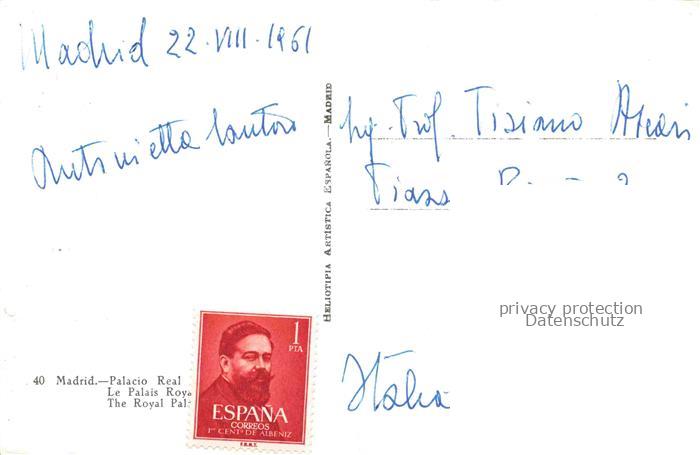 Madrid 22·VIII·1961
Antonietta Cantoro
Prof. Tiziano
Italia
HELIOTIPIA ARTÍSTICA ESPAÑOLA.—MADRID
privacy protection
Datenschutz
40 Madrid.—Palacio Real
Le Palais Roya
The Royal Pal
1
PTA
ESPAÑA
CORREOS
1er CENTº DE ALBENIZ
F.N.M.T.